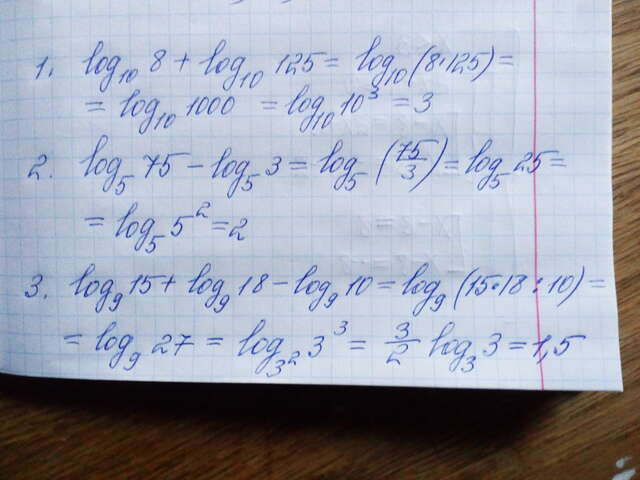 1. log₁₀ 8 + log₁₀ 125 = log₁₀ (8·125) =
= log₁₀ 1000 = log₁₀ 10³ = 3
2. log₅ 75 - log₅ 3 = log₅ (75/3) = log₅ 25 =
= log₅ 5² = 2
3. log₉ 15 + log₉ 18 - log₉ 10 = log₉ (15·18:10) =
= log₉ 27 = log₃² 3³ = 3/2 log₃ 3 = 1,5